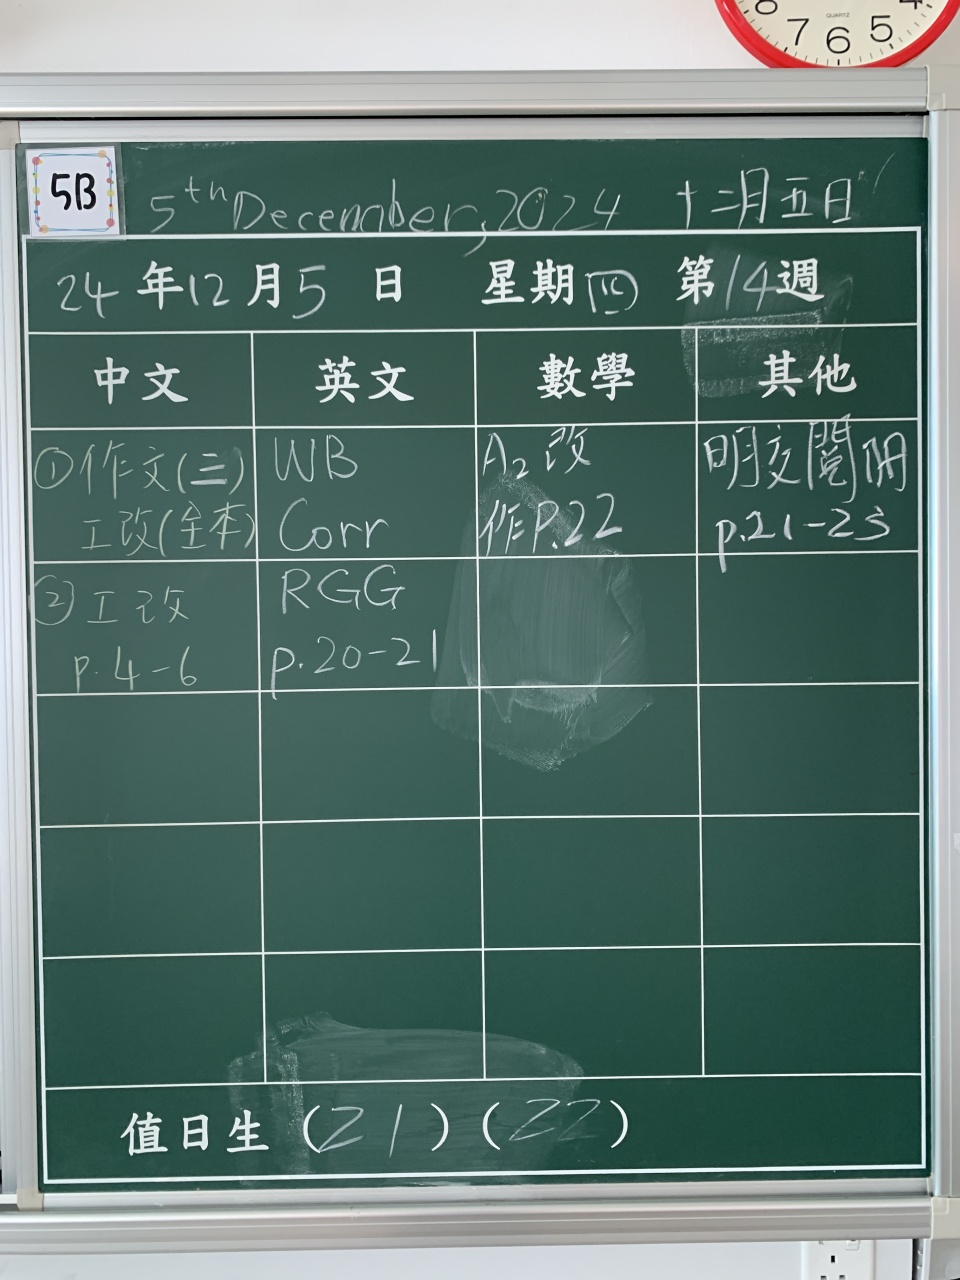 8 7 6 5 4
QUARTZ
5B
5th December, 2024 十二月五日
24年12月5日 星期四 第14週
中文 英文 數學 其他
①作文(三)
工改(全本)
WB
Corr
A2 改
作P.22
明交閱冊
p.21-23
②工改
p.4-6
RGG
p.20-21
值日生(21)(22)